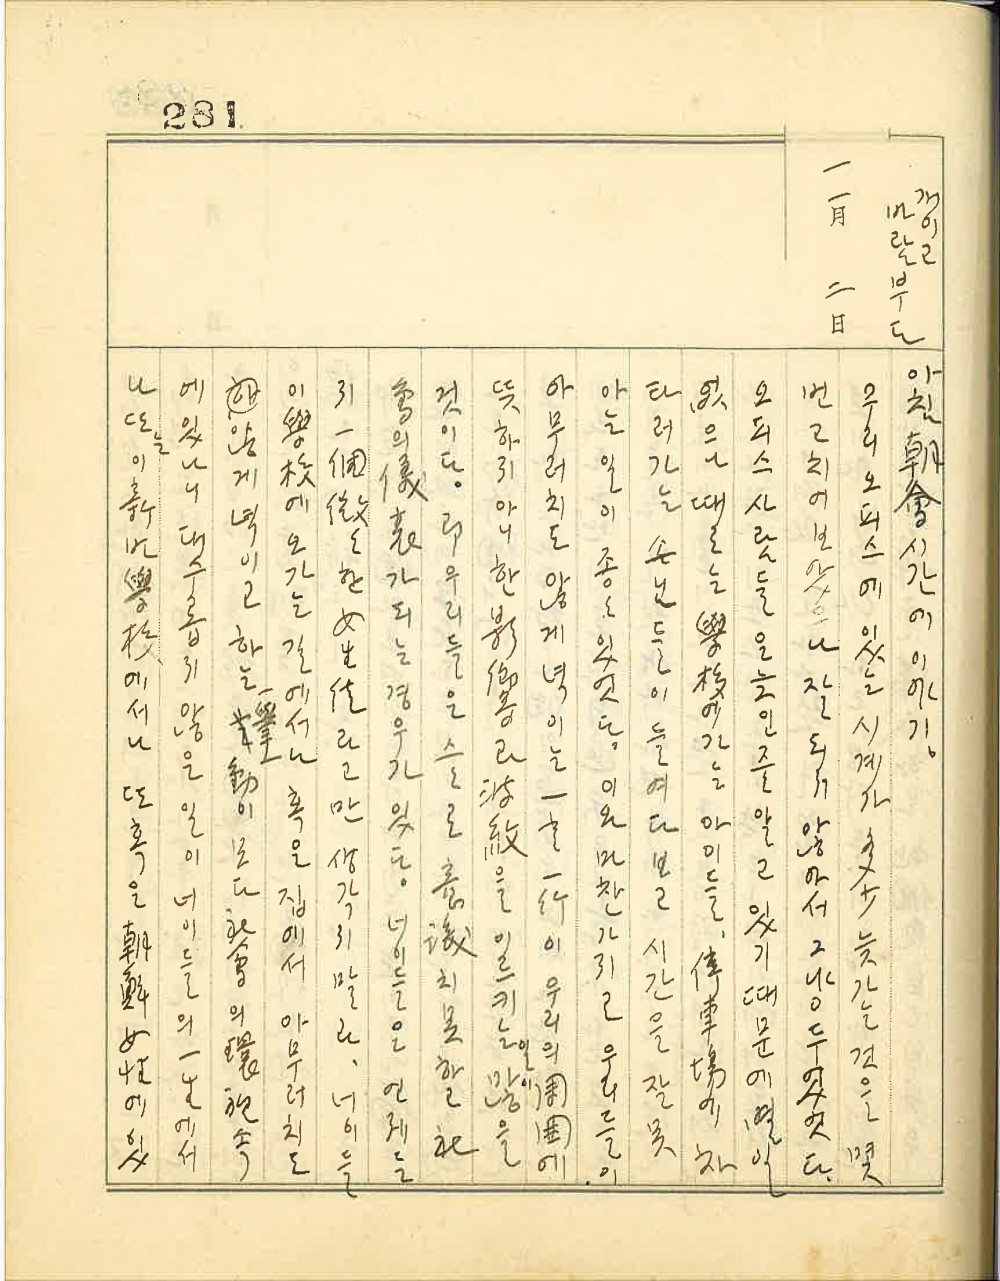 281
개이고
바람 부다
一一月 二日
아침 朝會시간에 이야기.
우리 오피스에 있는 시계가 多少 늦가는 것을 몇
번 고치어 보았으나 잘 되지 않아서 그냥 두었었다.
오피스 사람들은 늦인줄 알고 있기 때문에 별일
없으나 때로는 學校에 가는 아이들, 停車場에 차
타러가는 손님들이 들여다 보고 시간을 잘못
아는 일이 종종 있었다. 이와 마찬가지로 우리들이
아무러치도 않게 녁이는 一言 一行이 우리의 周圍에
뜻하지 아니한 影響과 波紋을 이르키는 일이 많을
것이다. 即 우리들은 스스로 意識치 못하고 社
會의 儀表가 되는 경우가 있다. 너이들은 언제든
지 一個 微々한 女生徒라고만 생각지 말라. 너이들
이 學校에 오가는 길에서나 혹은 집에서 아무러치도
않게 녁이고 하는 一擧一動이 모다 社會의 環視속
에 있나니 대수롭지 않은 일이 너이들의 一生에서
나 또는 이 新 學校에서나 또 혹은 朝鮮女性에 있